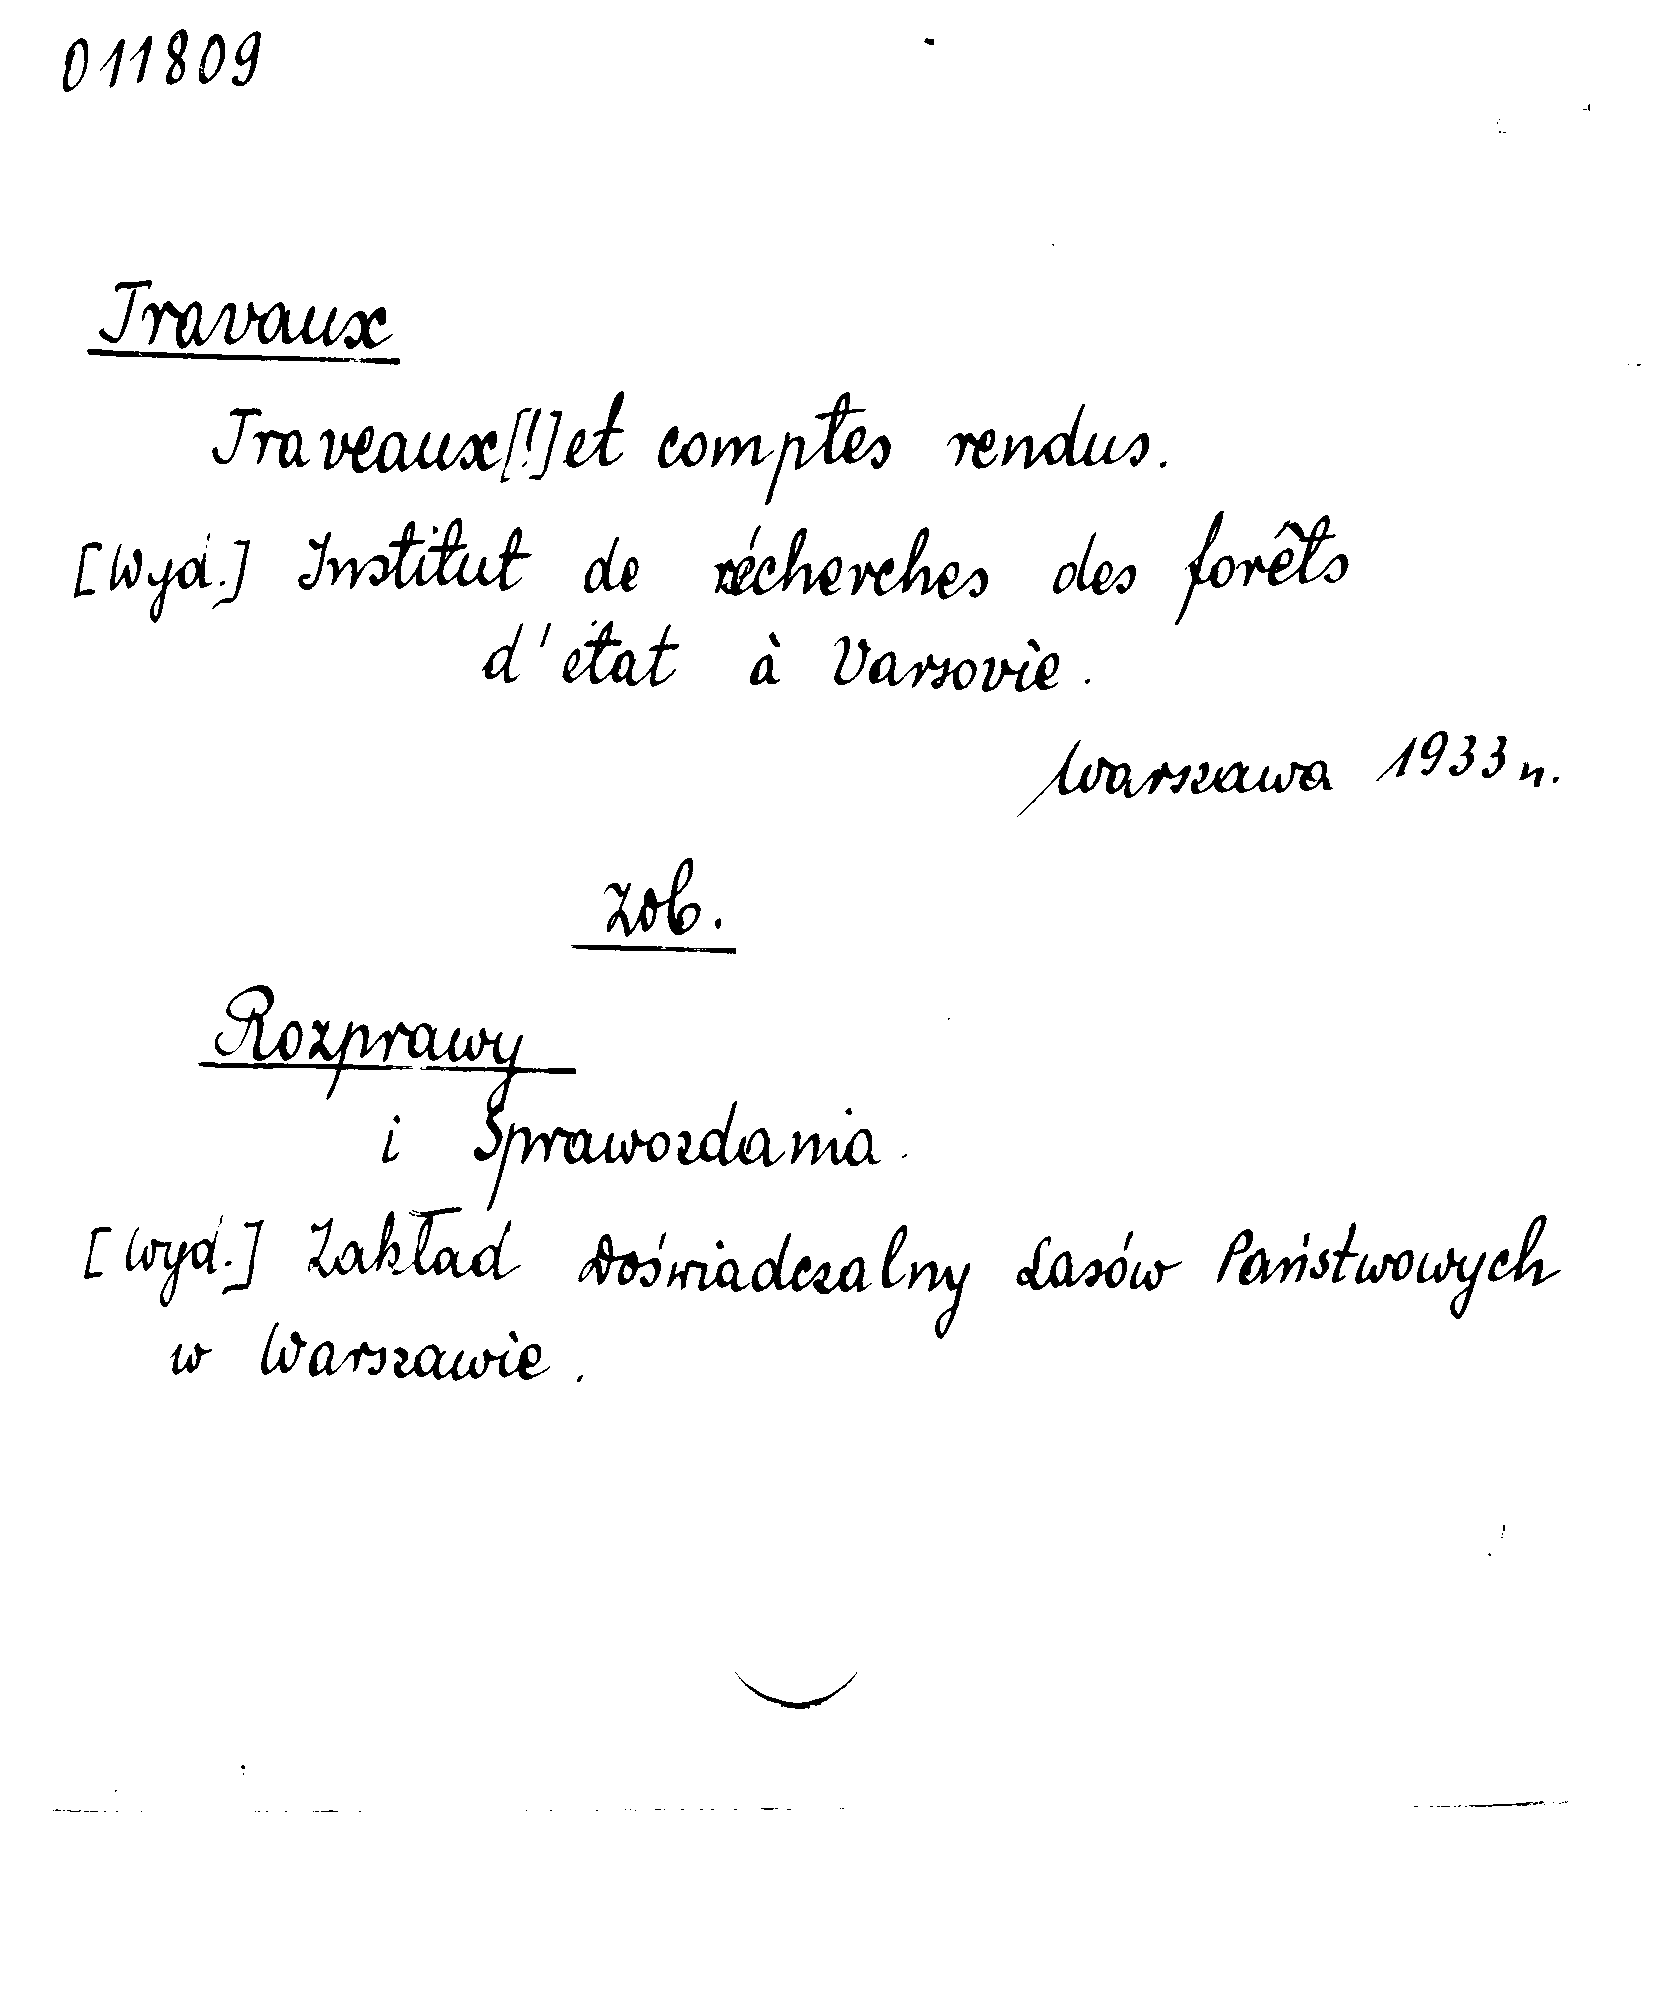 011809
Travaux
Traveaux[!] et comptes rendus.
[Wyd.] Institut de récherches des forêts
d'état à Varsovie.
Warszawa 1933 n.
zob.
Rozprawy
i Sprawozdania.
[Wyd.] Zakład Doświadczalny Lasów Państwowych
w Warszawie.